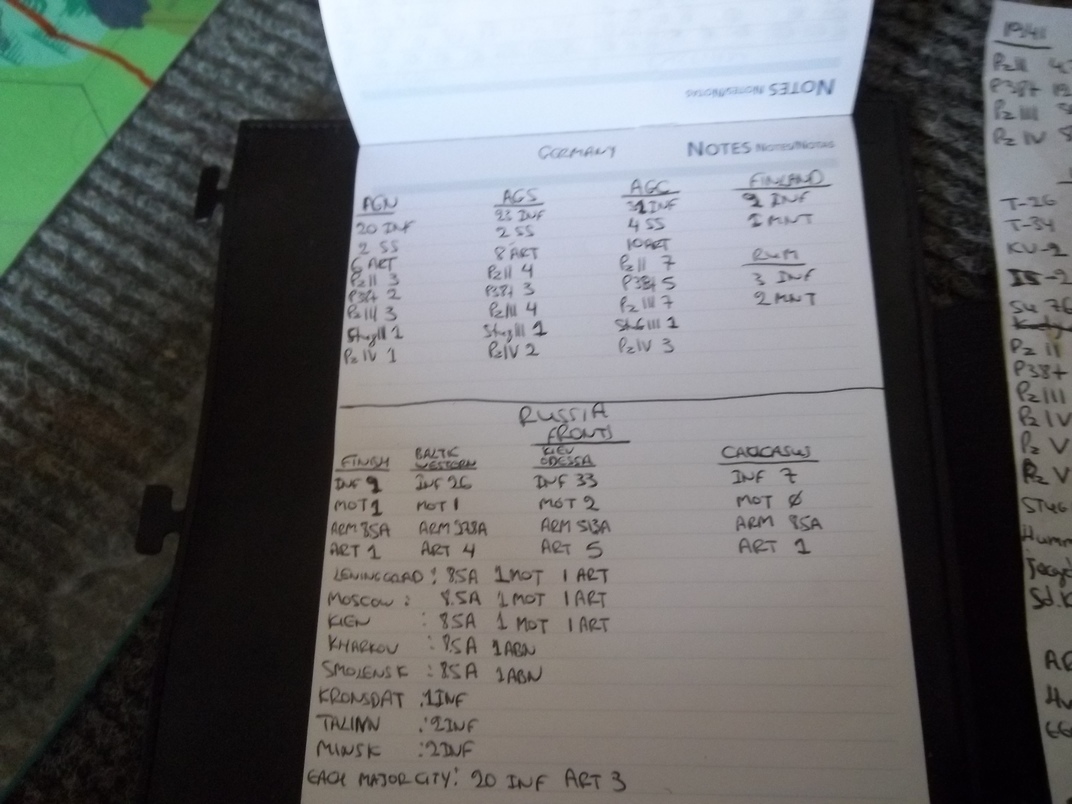 NOTES Notes/Notas
GERMANY NOTES Notes/Notas
AGN AGS AGC FINLAND
20 INF 23 INF 31 INF 9 INF
2 SS 2 SS 4 SS 1 MNT
6 ART 8 ART 10 ART
PzII 3 PzII 4 PzII 7 RUM
P38t 2 P38t 3 P38t 5 3 INF
PzIII 3 PzIII 4 PzIII 7 2 MNT
StugIII 1 StugIII 1 StGIII 1
PzIV 1 PzIV 2 PzIV 3
RUSSIA
FRONTS
FINISH BALTIC WESTERN KIEV ODESSA CAUCASUS
INF 9 INF 26 INF 33 INF 7
MOT 1 MOT 1 MOT 2 MOT 0
ARM 85A ARM ARM ARM 85A
ART 1 ART 4 ART 5 ART 1
LENINGGRAD : 85A 1 MOT 1 ART
MOSCOW : 85A 1 MOT 1 ART
KIEN : 85A 1 MOT 1 ART
KHARKOV : 85A 1ABN
SMOLENSK : 85A 1ABN
KRONSDAT : 1INF
TALINN : 2INF
MINSK : 2INF
EACH MAJOR CITY: 20 INF ART 3
1941
PzII
P38t
PzIII
PzIV
T-26
T-34
KV-2
SU 76
Pz II
P38t
Pz III
Pz IV
Pz V
STUG